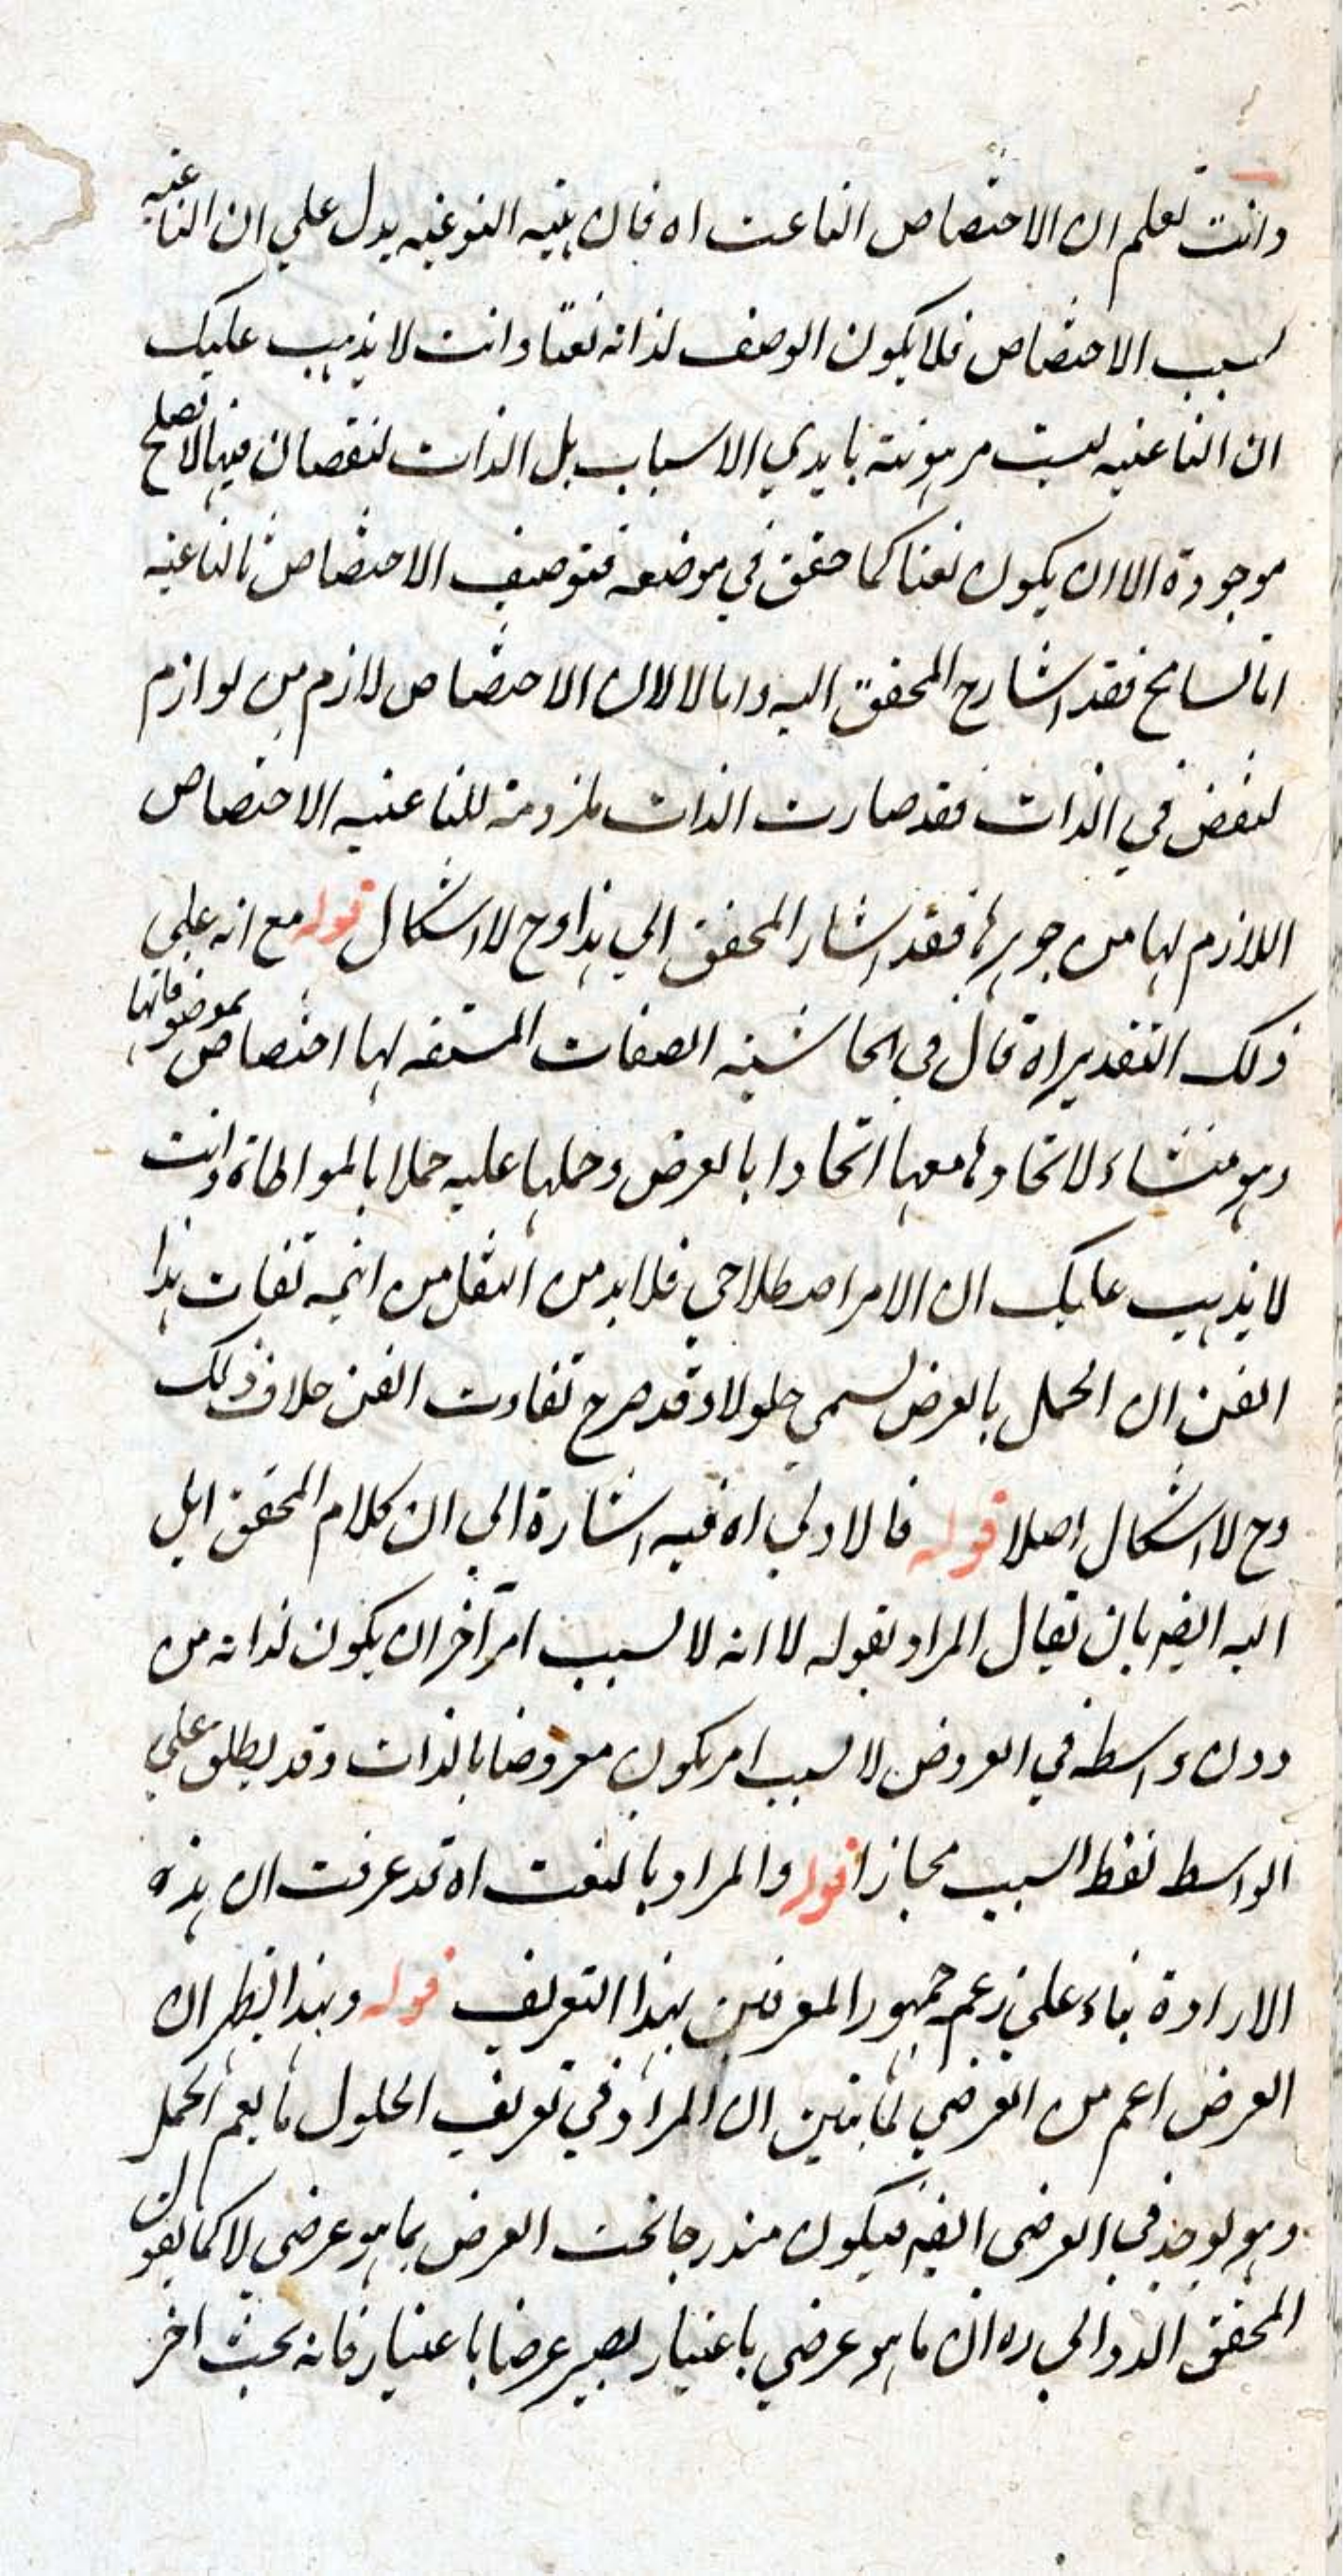 وانت تعلم ان الاختصاص الناعت اه فان بنيه النوعيه يدل علي ان الناعتيه
لسبب الاختصاص فلا يكون الوصف لذاته نعتا وانت لا يذهب عليك
ان الناعتيه ليست مرهونته بايدي الاسباب بل الذات لنقصان فيها لا تصلح
موجودة الا ان يكون نعتا كما حقق في موضعه فتوصيف الاختصاص بالناعتيه
اما تسامح فقد اشار المحقق اليه واما لا لان الاختصاص لازم من لوازم
لنقض في الذات فقد صارت الذات ملزومة للناعتيه الاختصاص
اللازم لها من جوهرها فقد اشار المحقق الي هذا وح لا اشكال قوله مع انه علي
ذلك التقدير اه قال في الحاشيه الصفات المشتقه لها اختصاص بموضوفاتها
وهو منشاء لاتحادها معها اتحادا بالعرض وحملها عليه حملا بالمواطاة وانت
لا يذهب عليك ان الامر اصطلاحي فلا بد من النقل من ائمه ثقات هذا
الفن ان الحمل بالعرض يسمي حلولا وقد صرح ثقاوت الفن خلاف ذلك
وح لا اشكال اصلا قوله فالاولي اه فيه اشارة الي ان كلام المحقق ايل
اليه ايضه بان يقال المراد بقوله لا انه لا لسبب امر آخر ان يكون لذاته من
دون واسطه في العروض لا لسبب امر يكون معروضا بالذات وقد يطلق علي
الواسط لفظ السبب مجازا قوله والمراد بالنعت اه قد عرفت ان هذه
الارادة بناء علي زعم جمهور المعرفين بهذا التعريف قوله وبهذا يظهر ان
العرض اعم من العرضي لما تبين ان المراد في تعريف الحلول ما يعم الحمل
وهو يوجد في العرضي ايضه فيكون مندرجا تحت العرض بما هو عرضي لا كما يقول
المحقق الدوالي ره ان ما هو عرضي باعتبار يصير عرضا باعتبار فانه بحث اخر